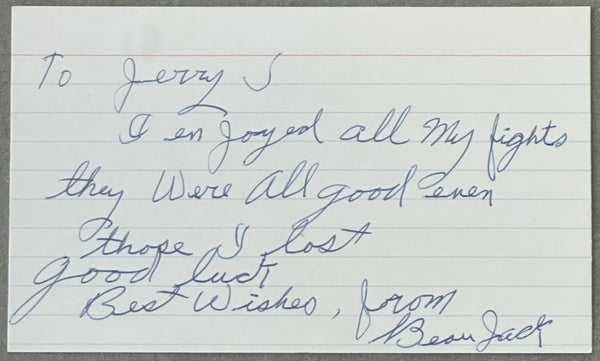 To Jerry J
I enjoyed all my fights
they Were All good even
those I lost
good luck
Best Wishes, from
Beau Jack